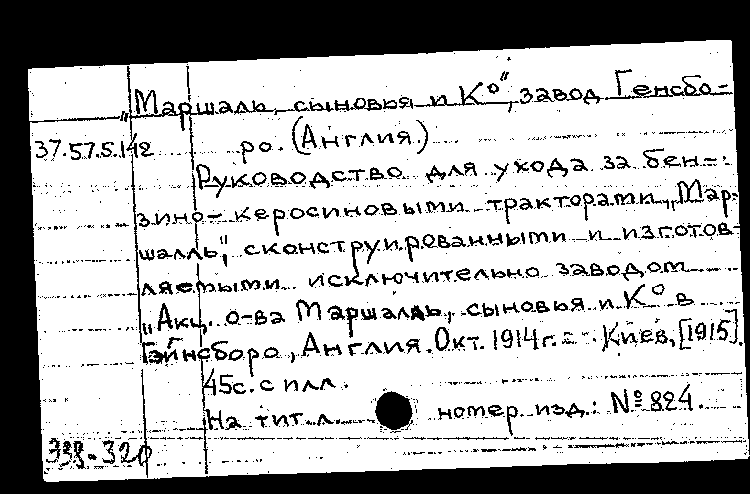 „Маршаль, сыновья и К°", завод Генсбо-
37.57.5.142 ро. (Англия.)
Руководство для ухода за бен-
зино-керосиновыми тракторами „Мар-
шалль", сконструированными и изготов-
ляемыми исключительно заводом
„Акц. о-ва Маршалль, сыновья и К° в
Гэйнсборо, Англия. Окт. 1914 г. – Киев, [1915].
45с. с илл.
На тит. л. номер изд.: № 824.
338-320